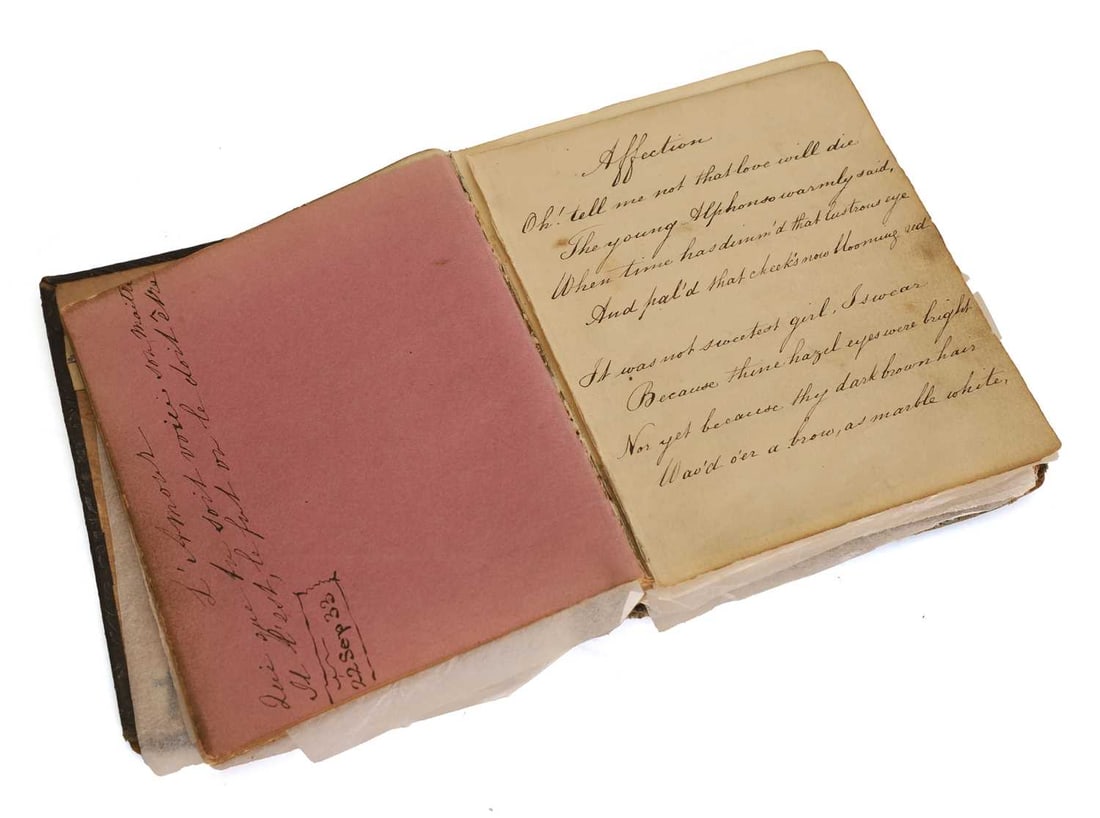 L'Amour
Qui que tu soit voici son maitre
Il l'est, le fut ou le doit être
22 Sep 33
Affection
Oh! tell me not that love will die
The young Alphonso warmly said,
When time has dimm'd that lustrous eye
And pal'd that cheek's now blooming red
It was not sweetest girl, I swear
Because thine hazel eyes were bright
Nor yet because thy dark brown hair
Wav'd o'er a brow, as marble white,